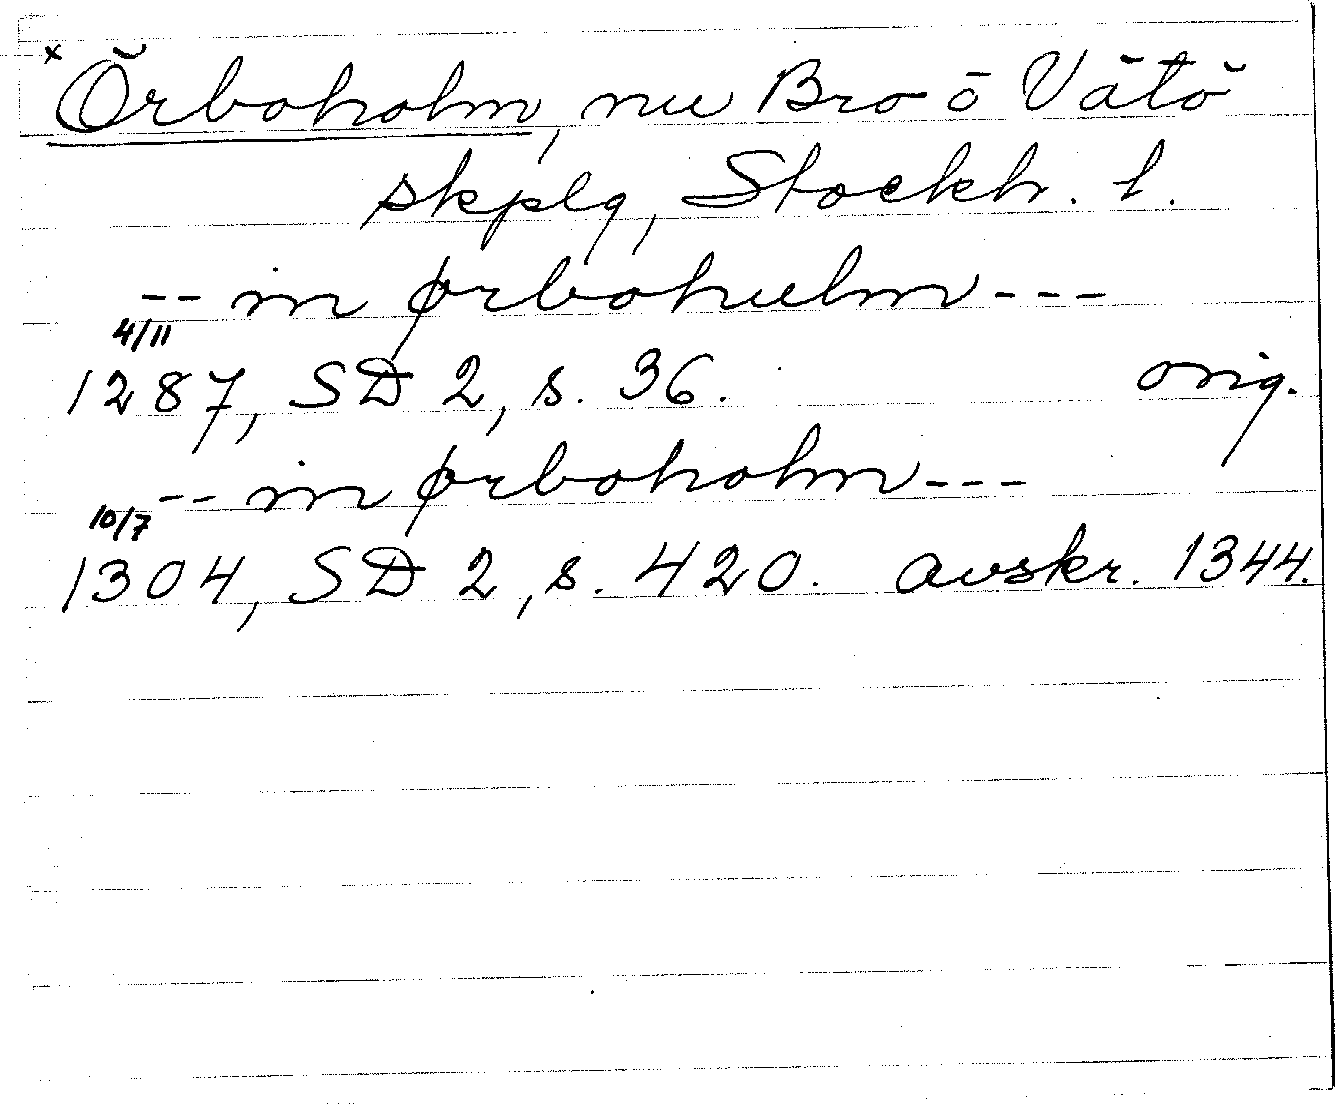 x Örboholm, nu Bro o Vätö
skplg, Stockh. l.
-- in ørbohulm ---
4/11
1287, SD 2, s. 36. orig.
-- in ørboholm ---
10/7
1304, SD 2, s. 420. avskr. 1344.